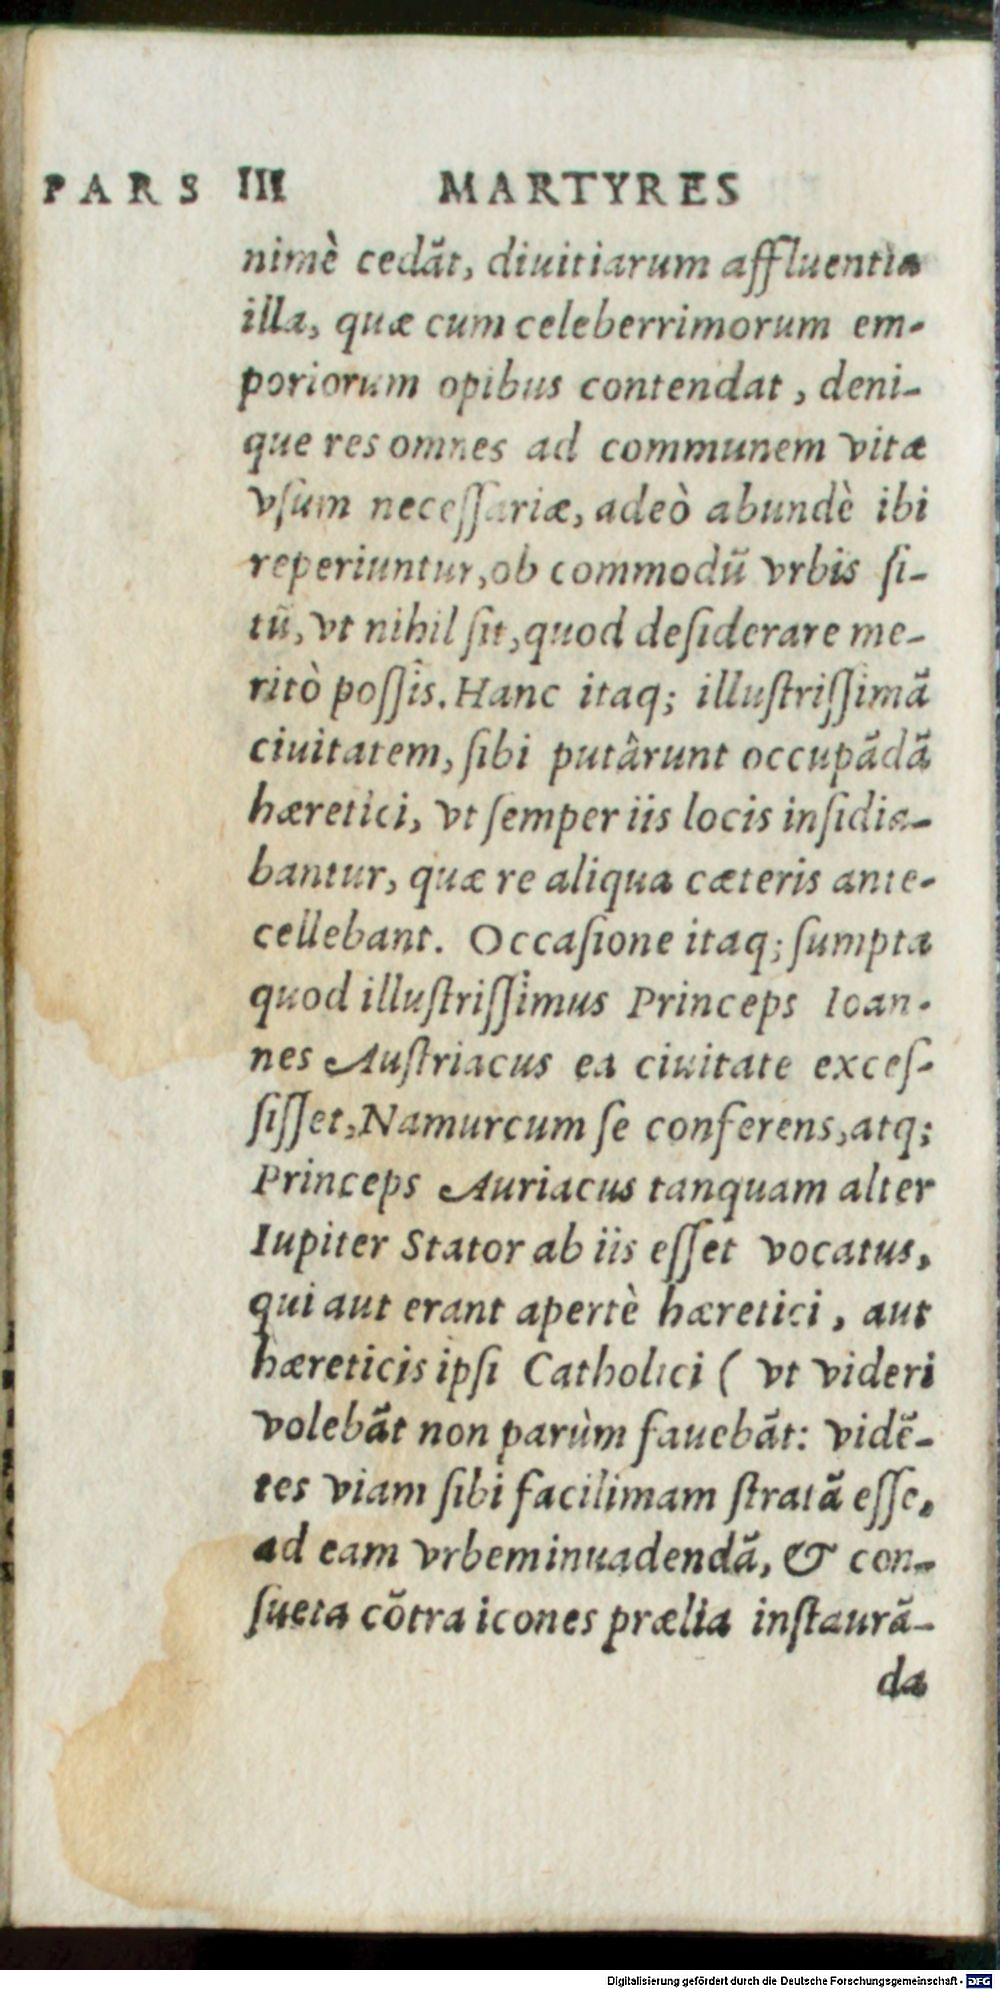 PARS III MARTYRES
nimè cedãt, diuitiarum affluentia
illa, quæ cum celeberrimorum em-
poriorum opibus contendat, deni-
que res omnes ad communem vitæ
vſum neceſſariæ, adeò abundè ibi
reperiuntur, ob commodũ vrbis ſi-
tũ, vt nihil ſit, quod deſiderare me-
ritò poſſis. Hanc itaq; illuſtriſſimã
ciuitatem, ſibi putârunt occupãdã
hæretici, vt ſemper iis locis inſidia-
bantur, quæ re aliqua cæteris ante-
cellebant. Occaſione itaq; ſumpta
quod illuſtriſſimus Princeps Ioan-
nes Auſtriacus ea ciuitate exceſ-
ſiſſet, Namurcum ſe conferens, atq;
Princeps Auriacus tanquam alter
Iupiter Stator ab iis eſſet vocatus,
qui aut erant apertè hæretici, aut
hæreticis ipſi Catholici ( vt videri
volebãt non parùm fauebãt: vidẽ-
tes viam ſibi facilimam ſtratã eſſe,
ad eam vrbem inuadendã, & con-
ſueta cõtra icones prælia inſtaurã-
da
Digitalisierung gefördert durch die Deutsche Forschungsgemeinschaft - DFG